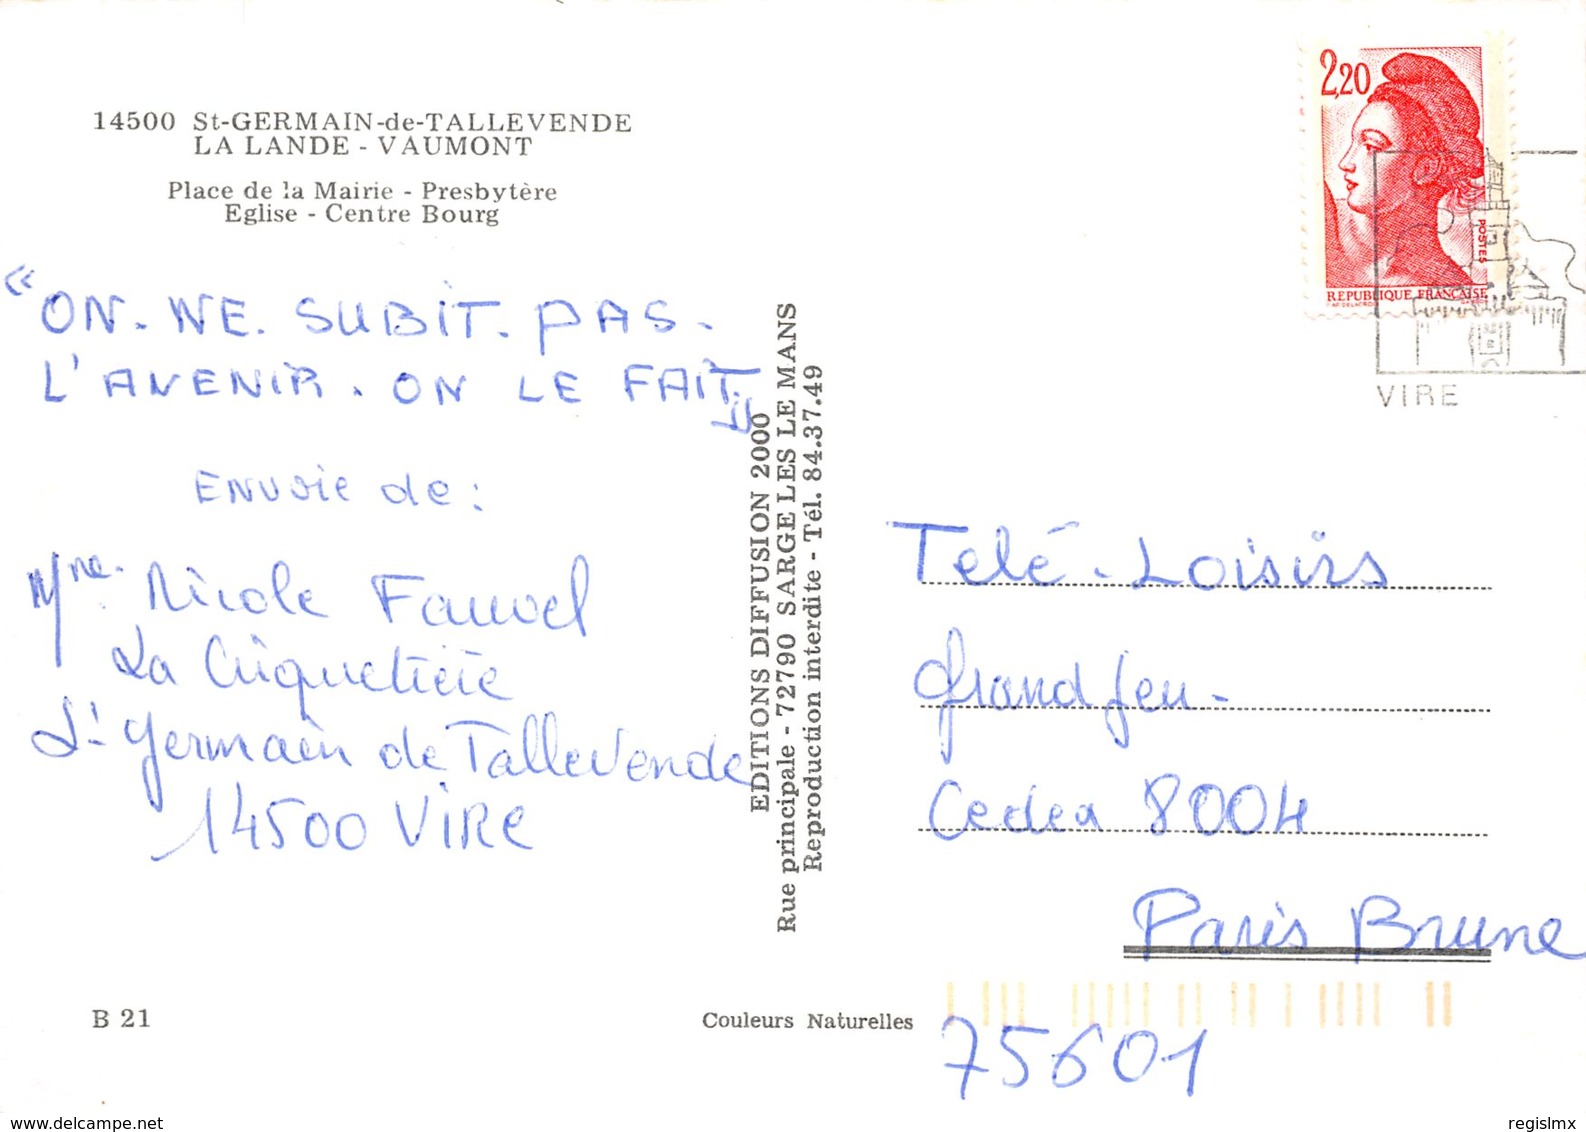 14500 St-GERMAIN-de-TALLEVENDE
LA LANDE - VAUMONT
Place de la Mairie - Presbytère
Eglise - Centre Bourg
« ON. NE. SUBIT. PAS.
L'AVENIR. ON LE FAIT. »
ENVOIE de :
Mme. Nicole Fauvel
La Criquetière
St Germain de Tallevende
14500 VIRE
EDITIONS DIFFUSION 2000
Rue principale - 72790 SARGE LES LE MANS
Reproduction interdite - Tél. 84.37.49
2,20
POSTES
REPUBLIQUE FRANÇAISE
VIRE
Telé-Loisirs
Grand jeu-
Cedex 8004
Paris Brune
75601
B 21
Couleurs Naturelles
www.delcampe.net
regislmx